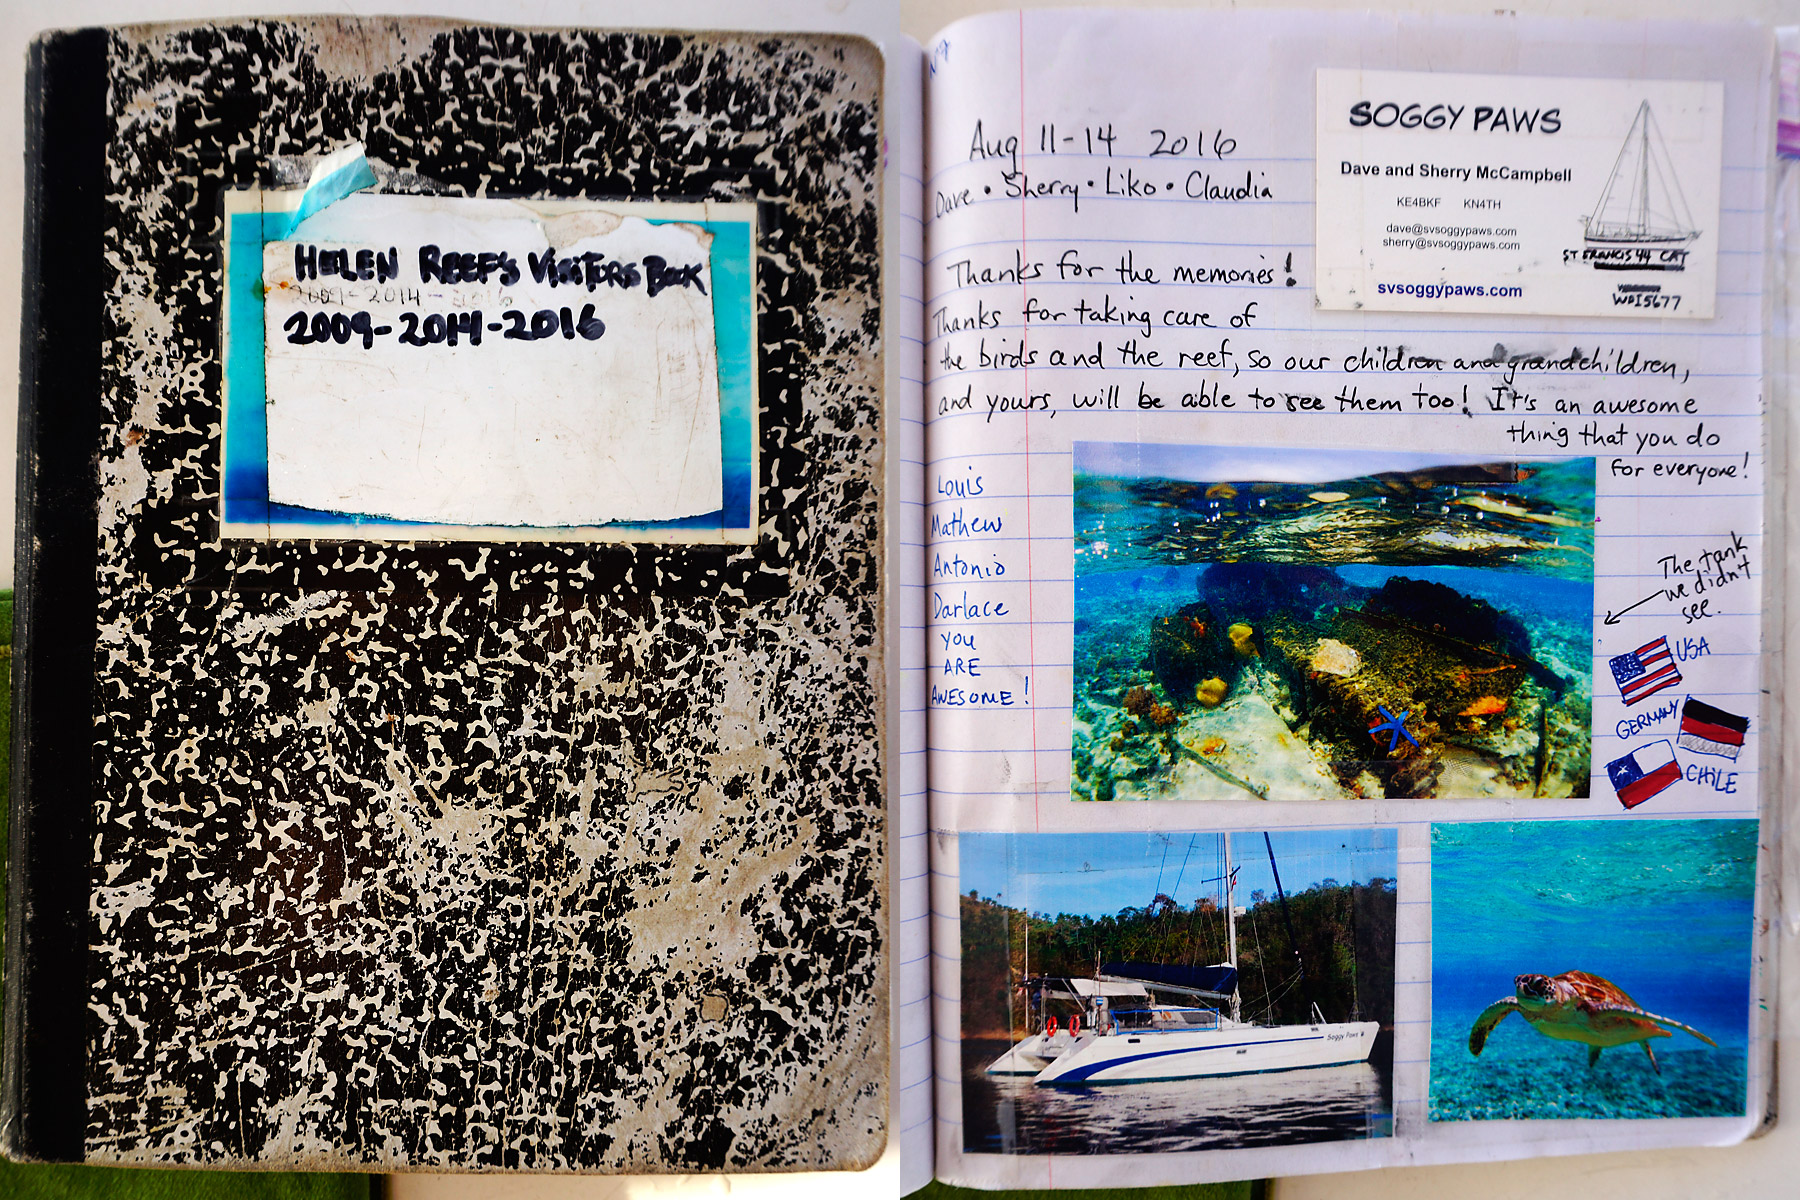 HELEN REEF'S VISITORS BOOK
2009-2014-2016
2009-2014-2016
Aug 11-14 2016
Dave • Sherry • Liko • Claudia
Thanks for the memories!
Thanks for taking care of
the birds and the reef, so our children and grandchildren,
and yours, will be able to see them too! It's an awesome
thing that you do
for everyone!
SOGGY PAWS
Dave and Sherry McCampbell
KE4BKF KN4TH
dave@svsoggypaws.com
sherry@svsoggypaws.com
ST FRANCIS 44 CAT
svsoggypaws.com
WDI5677
Louis
Mathew
Antonio
Darlace
YOU
ARE
AWESOME!
The tank
we didn't
see.
USA
GERMANY
CHILE
Soggy Paws